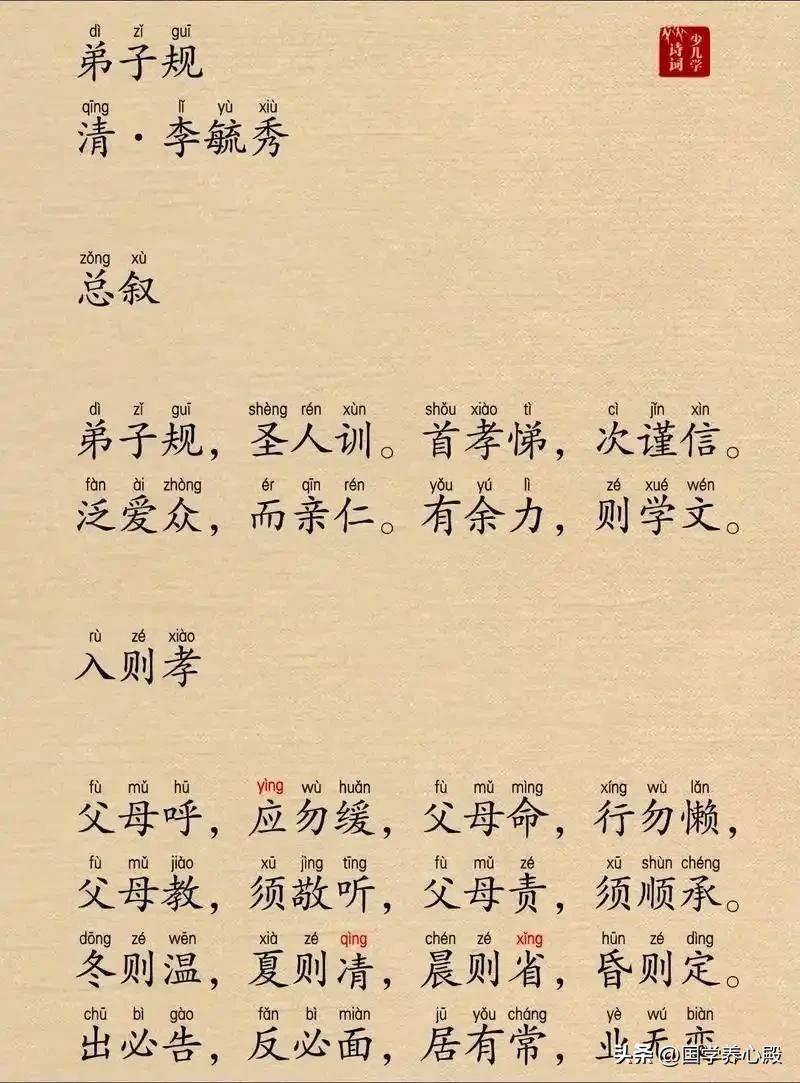 dì zǐ guī
弟子规
少儿学
诗词
qīng lǐ yù xiù
清·李毓秀
zǒng xù
总叙
dì zǐ guī shèng rén xùn shǒu xiào tì cì jǐn xìn
弟子规，圣人训。首孝悌，次谨信。
fàn ài zhòng ér qīn rén yǒu yú lì zé xué wén
泛爱众，而亲仁。有余力，则学文。
rù zé xiào
入则孝
fù mǔ hū yìng wù huǎn fù mǔ mìng xíng wù lǎn
父母呼，应勿缓，父母命，行勿懒，
fù mǔ jiào xū jìng tīng fù mǔ zé xū shùn chéng
父母教，须敬听，父母责，须顺承。
dōng zé wēn xià zé qìng chén zé xǐng hūn zé dìng
冬则温，夏则凊，晨则省，昏则定。
chū bì gào fǎn bì miàn jū yǒu cháng yè wú biàn
出必告，反必面，居有常，业无变
头条 @国学养心殿